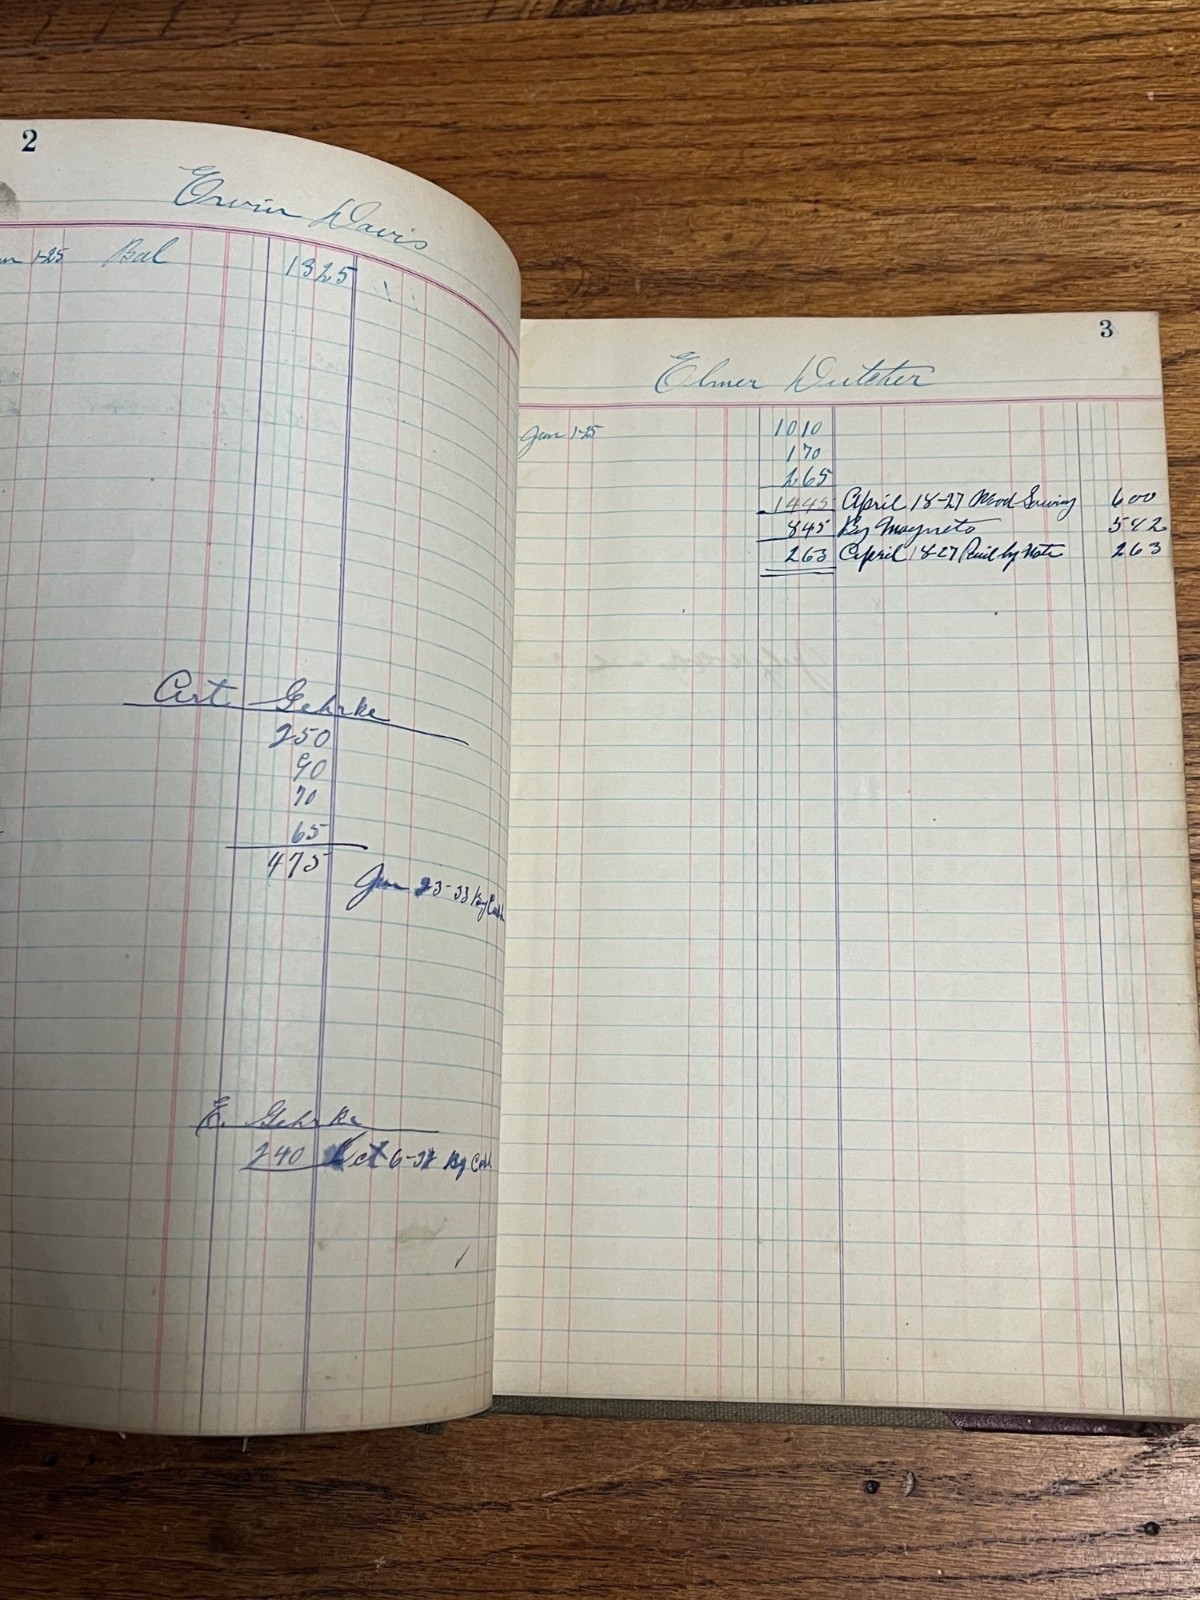 2
Erwin Davis
1-25 Bal 1325
Art. Gehrke
250
90
70
65
475
Jan 23-33 By Cash
E. Gehrke
240 Oct 6-32 By Cash
3
Elmer Dutcher
Jan 1-25 1010
170
265
1445 April 18-27 Wood Sawing 600
845 By Magneto 582
263 April 18-27 Paid by Note 263